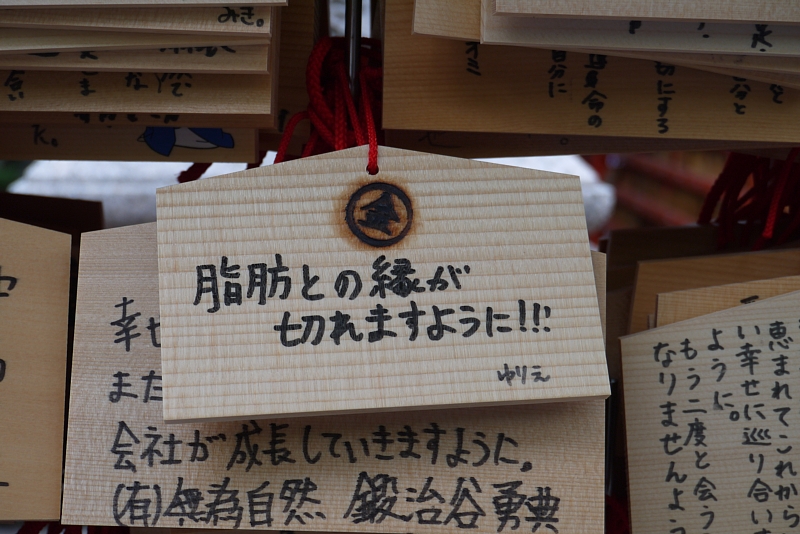 脂肪との縁が
切れますように!!!
ゆりえ
幸せ
また
会社が成長していきますように。
(有)無為自然 鍛治谷勇典
恵まれてこれから
い幸せに巡り合い
ように。
もう二度と会う
なりませんよう
みき。
K。
自分に
切にする